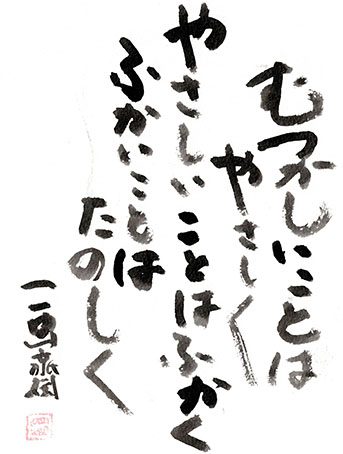 むつかしいことは
やさしく
やさしいことはふかく
ふかいことは
たのしく